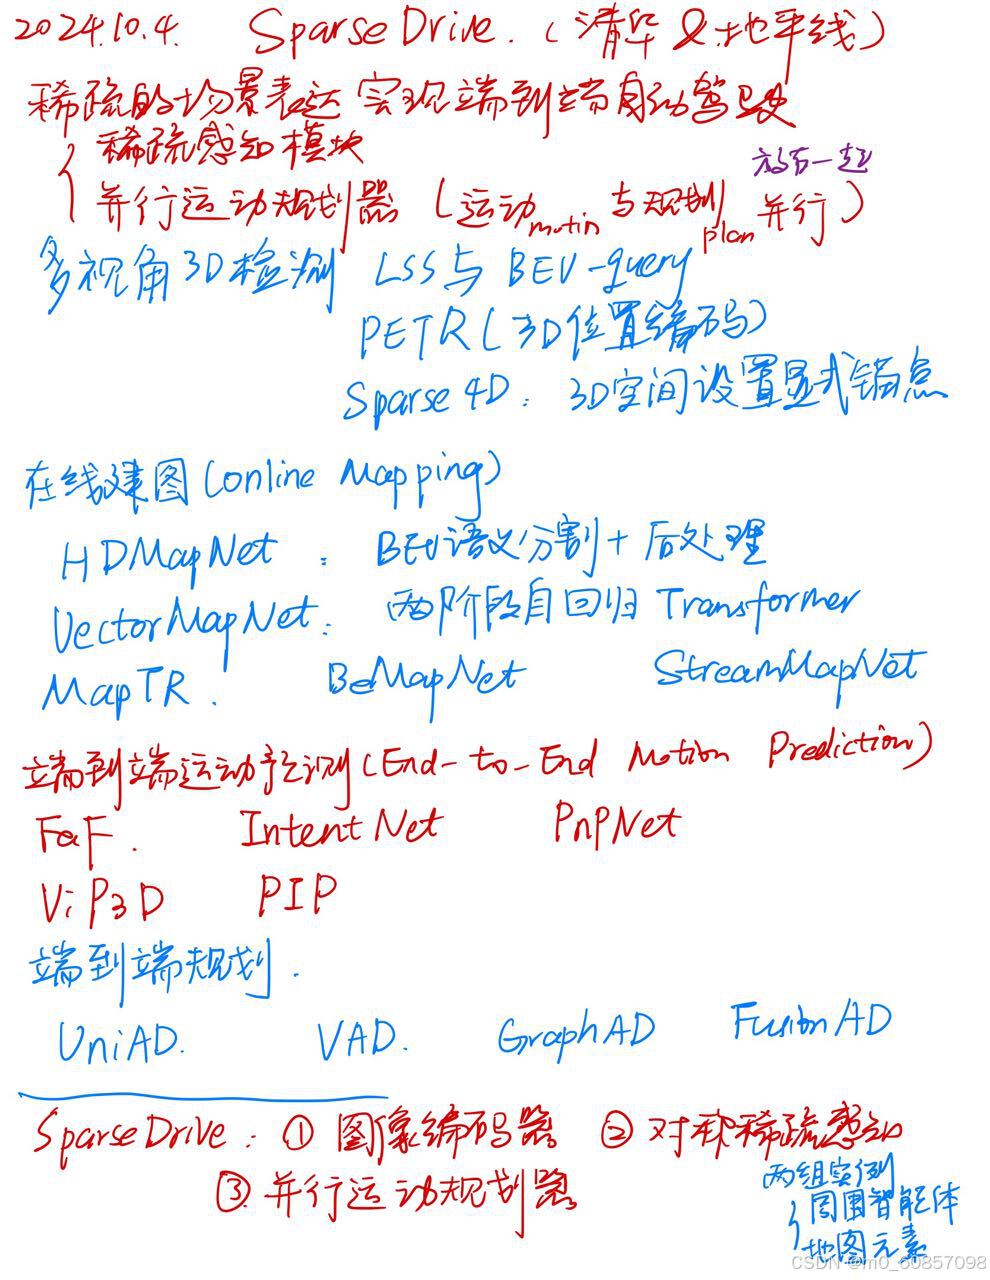 2024.10.4. SparseDrive.(清华&地平线)
稀疏的场景表达实现端到端自动驾驶
{稀疏感知模块
放在一起
并行运动规划器(运动motin与规划plan并行)
多视角3D检测 LSS与BEV-query
PETR(3D位置编码)
Sparse4D:3D空间设置显式锚点
在线建图(online Mapping)
HDMapNet:BEV语义分割+后处理
VectorMapNet:两阶段自回归Transformer
MapTR. BeMapNet StreamMapNet
端到端运动预识别(End-to-End Motion Prediction)
FaF. IntentNet PnPNet
ViP3D PIP
端到端规划.
UniAD. VAD. GraphAD FusionAD
SparseDrive:①图像编码器 ②对称稀疏感知
两组实例
③并行运动规划器
{周围智能体
地图元素
CSDN @m0_60857098